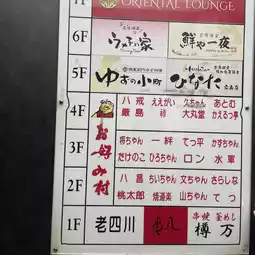 ORIENTAL LOUNGE
6F
ウメ子の家
鮮や一夜
5F
ゆずの小町
ひなた
4F
八戒 ええがい 久ちゃん あとむ
厳島 祿 大丸堂 かえるっ亭
お好み村
3F
将ちゃん 一絆 てっ平 かずちゃん
たけのこ ひろちゃん ロン 水軍
2F
八昌 ちいちゃん 文ちゃん さらしな
桃太郎 焼道楽 山ちゃん てつ
1F
老四川
串焼 釜めし
樽万